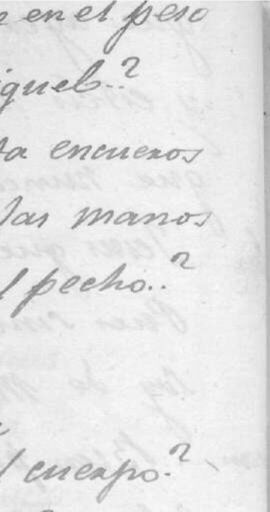 en el peso
iguel..?
ta encueros
las manos
l pecho..?
l cuerpo.?